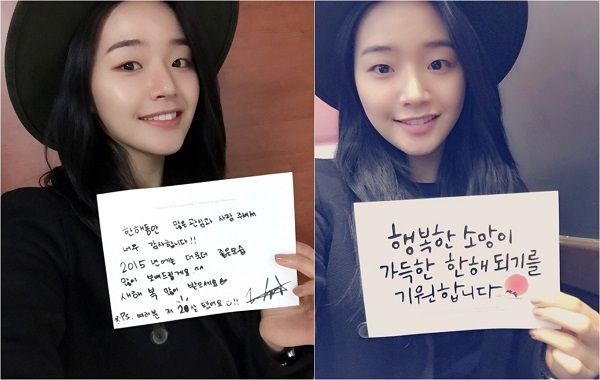 한해동안 많은 관심과 사랑 주셔서
너무 감사합니다!!
2015년에는 더욱더 좋은모습
많이 보여드릴게요^^
새해 복 많이 받으세요
*Ps. 여러분 저 20살 됐어요 !!
행복한 소망이
가득한 한해 되기를
기원합니다